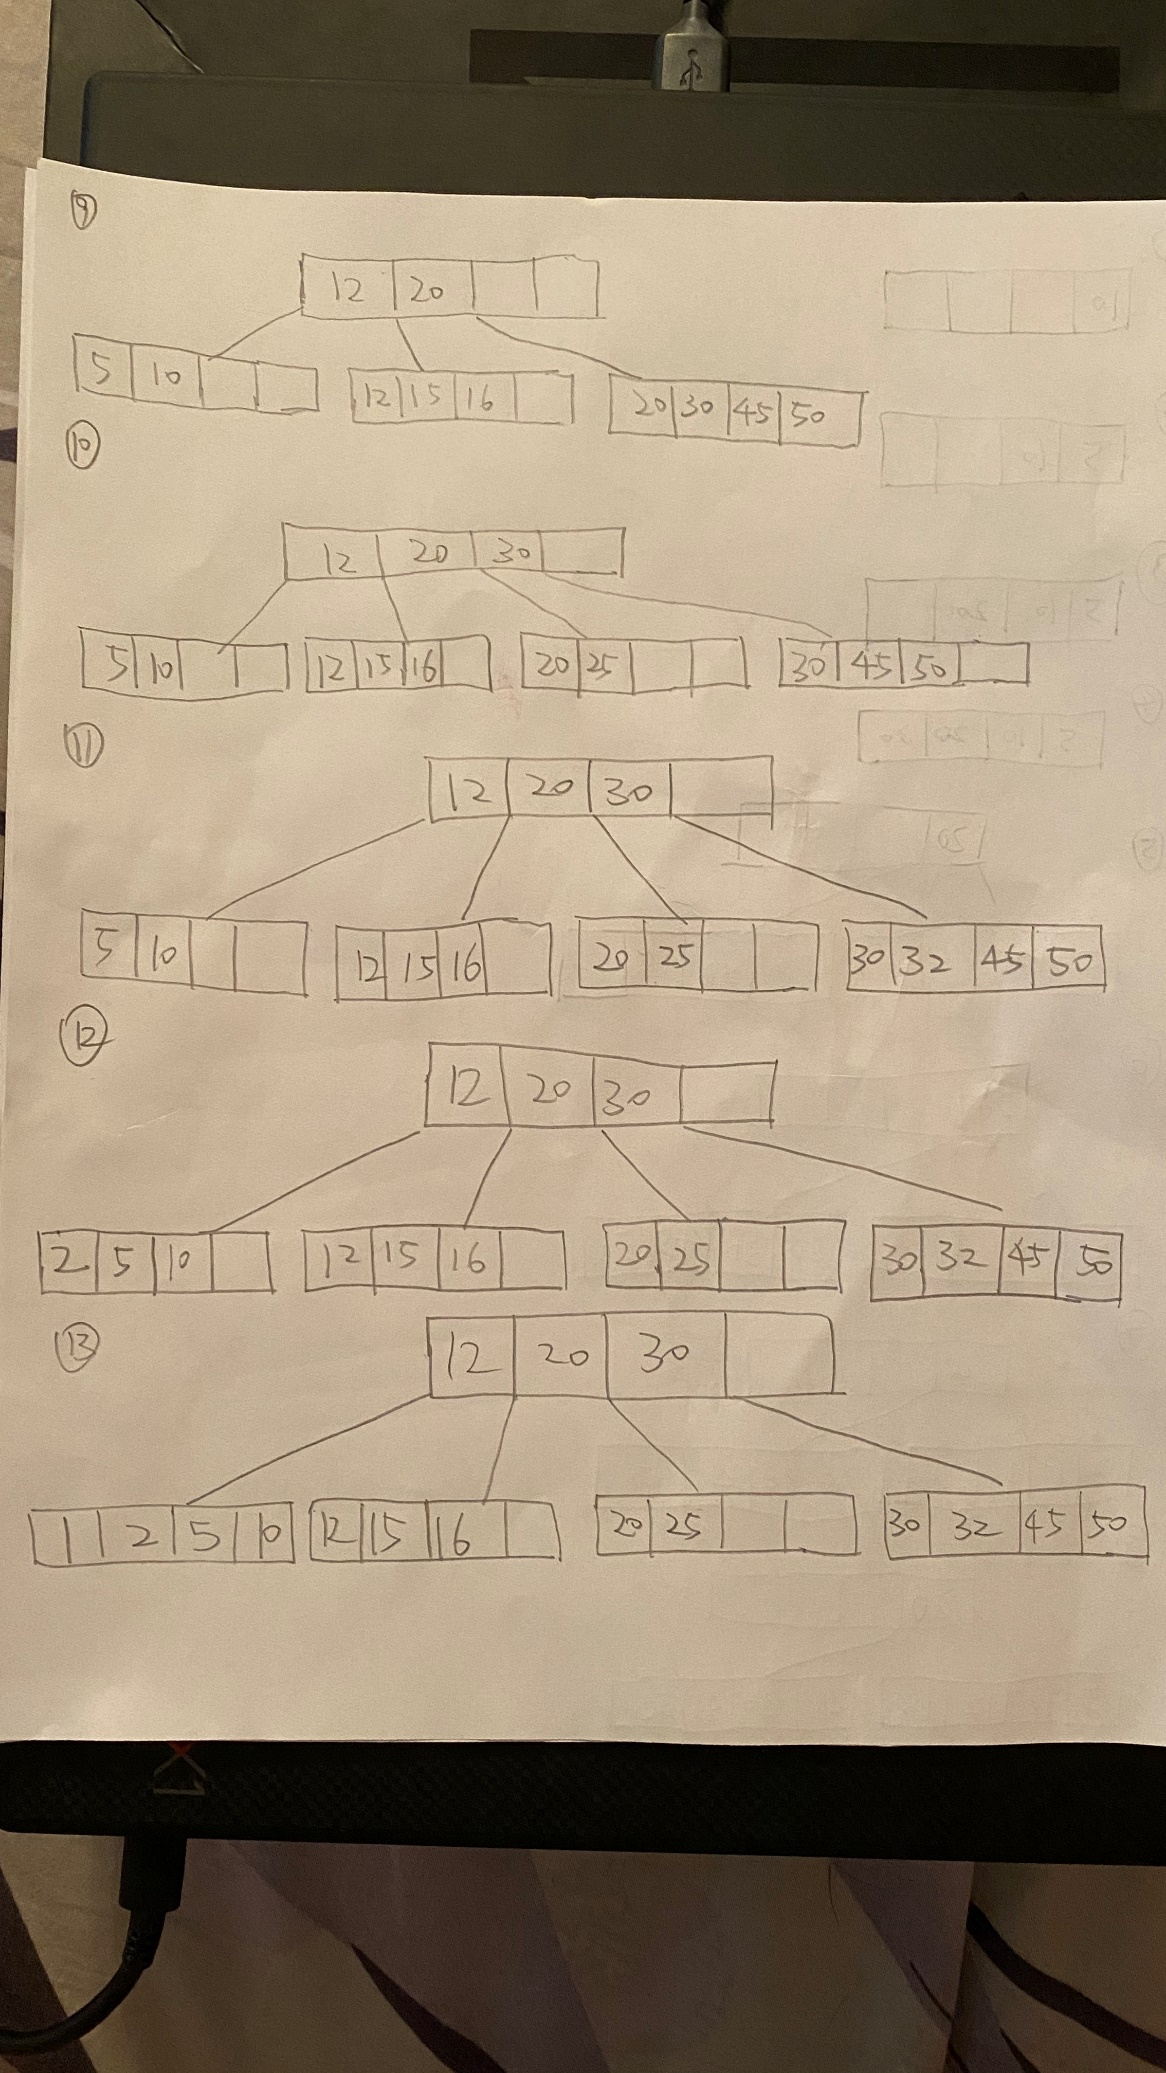 ⑨
12 20
5 10 12 15 16 20 30 45 50
⑩
12 20 30
5 10 12 15 16 20 25 30 45 50
⑪
12 20 30
5 10 12 15 16 20 25 30 32 45 50
⑫
12 20 30
2 5 10 12 15 16 20 25 30 32 45 50
⑬
12 20 30
1 2 5 10 12 15 16 20 25 30 32 45 50